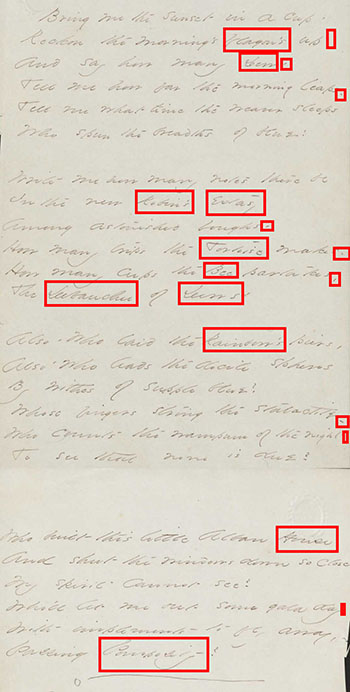 Bring me the sunset in a Cup -
Reckon the morning's Flagon's up
And say how many Dew -
Tell me how far the morning leaps -
Tell me what time the weaver sleeps
Who spun the breadths of blue!
Write me how many notes there be
In the new Robin's Extasy
Among astonished boughs -
How many trips the Tortoise makes -
How many cups the Bee partakes,
The Debauchee of Dews!
Also, Who laid the Rainbow's piers,
Also, Who leads the docile spheres
By withes of supple blue?
Whose fingers string the stalactite -
Who counts the wampum of the night
To see that none is due?
Who built this little Alban House
And shut the windows down so close
My spirit cannot see?
Who'll let me out some gala day
With implements to fly away,
Passing Pomposity!